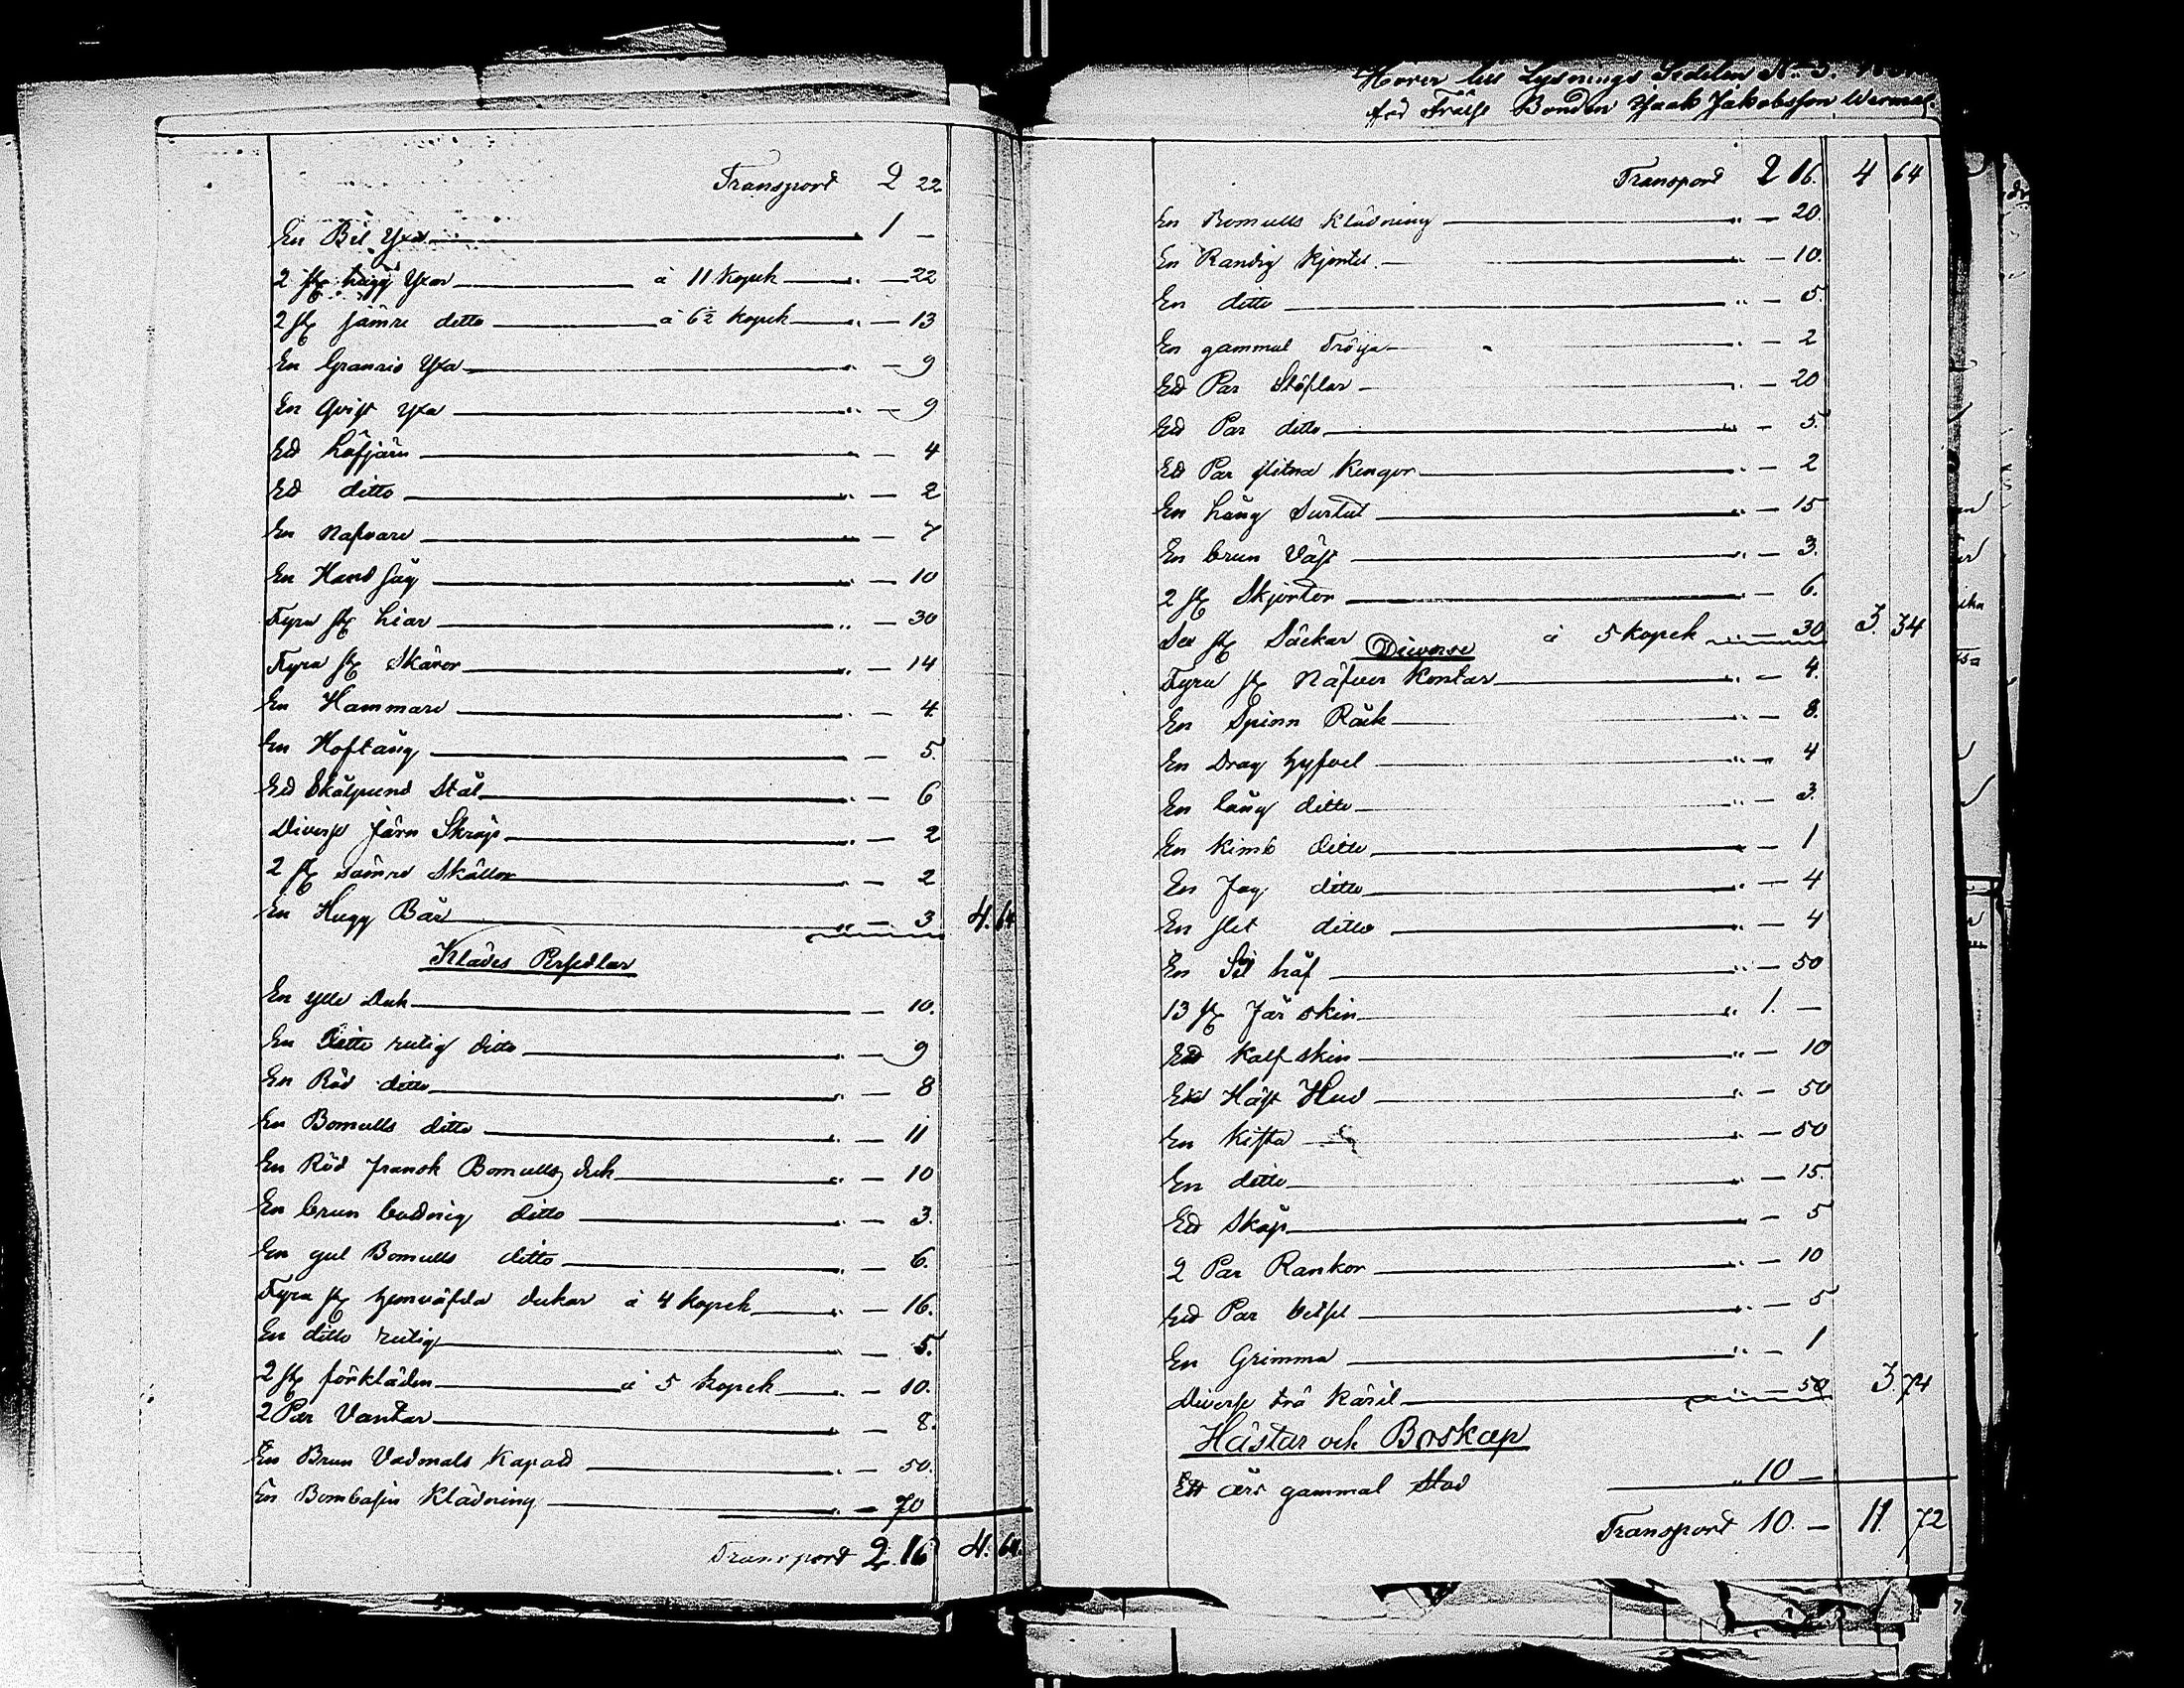 Transport 2 22
En Bil Yxa 1 —
2 st hugg Yxor à 11 Kopek " — 22
2 st sämre ditto à 6½ Kopek " — 13
En Granris Yxa " — 9
En Qvist Yxa " — 9
Ett Löfjärn " — 4
Ett ditto " — 2
En Nafvare " — 7
En Hand såg " — 10
Fyra st Liar " — 30
Fyra st Skäror " — 14
En Hammare " — 4
En Hoftång " — 5.
Ett Skålpund Stål " — 6
Diverse Järn Skrap " — 2
2 st sämre Skällor " — 2
En Hugg Bår " — 3 4. 64
Klädes Persedlar
En ylle Duk — 10.
En Ditto rutig ditto " — 9
En Röd ditto — 8
En Bomulls ditto " — 11
En Röd fransk Bomulls duk " — 10
En brun ditto " — 3.
En gul Bomulls ditto " — 6.
Fyra st hemväfda dukar à 4 kopek " — 16.
En ditto rutig — 5.
2 st förkläden à 5 kopek " — 10.
2 Par Vantar — 8.
En Brun Vadmals Kapott " — 50.
En Bombasin Klädning " — 70
Transport 2 16 4. 64.
Hörer till Lysnings Sedeln No 3.
Bonden Isaak Jakobsson
Transport 2 16. 4 64
En Bomulls Klädning " — 20
En Randig Kjortel " — 10.
En ditto " — 5.
En gammal Tröija " — 2
Ett Par Stöflar " — 20
Ett Par ditto " — 5.
Ett Par slitna Kengor " — 2
En Lång Surtut " — 15
En brun Väst " — 3.
2 st Skjortor " — 6.
Sex st Säckar à 5 kopek " — 30 3. 34
Diverse
Fyra st Näfver Kontar " — 4.
En Spinn Råck " — 8.
En Drag Hyfvel " — 4
En lång ditto " — 3.
En Kimb ditto " — 1
En Fog ditto " — 4
En slet ditto " — 4
En håf " — 50
13 st Får skin " 1. —
Ett Kalf skin " — 10
En Häst Hud " — 50
En Kista " — 50
En ditto " — 15.
Ett Skåp " — 5
2 Par Rankor " — 10
Ett Par betsel " — 5
En Grimma " — 1
Diverse trä Käril " — 50 3 74
Hästar och Boskap
Ett års gammal Stod " 10 —
Transport 10. — 11. 72